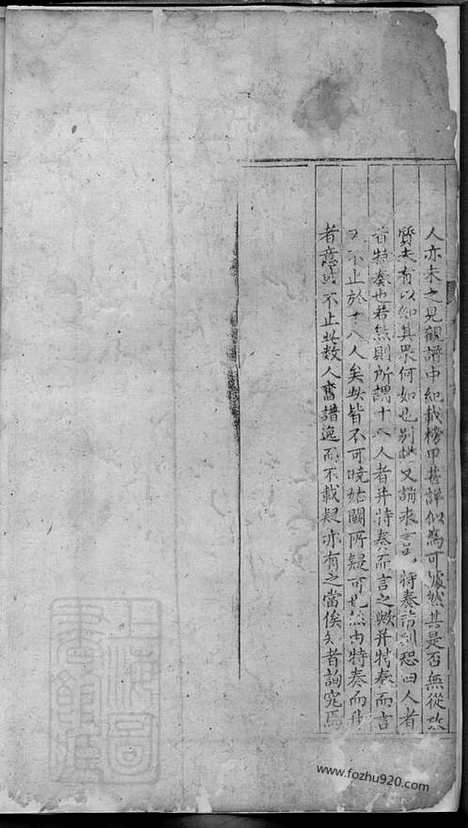 人亦未之見觀譜中紀載榜甲甚詳似為可據然其是否無從攷
質夫有以知其畧何如也別批又謂來言特奏詣闕恐四人者
皆特奏也若然則所謂十八人者并特奏而言之歟并特奏而言
又不止於十八人矣此皆不可曉姑闕所疑可也然由特奏而升
者意或不止此数人舊譜逸而不載疑亦有之當俟知者詢究焉
上海圖書館藏
www.fozhu920.com